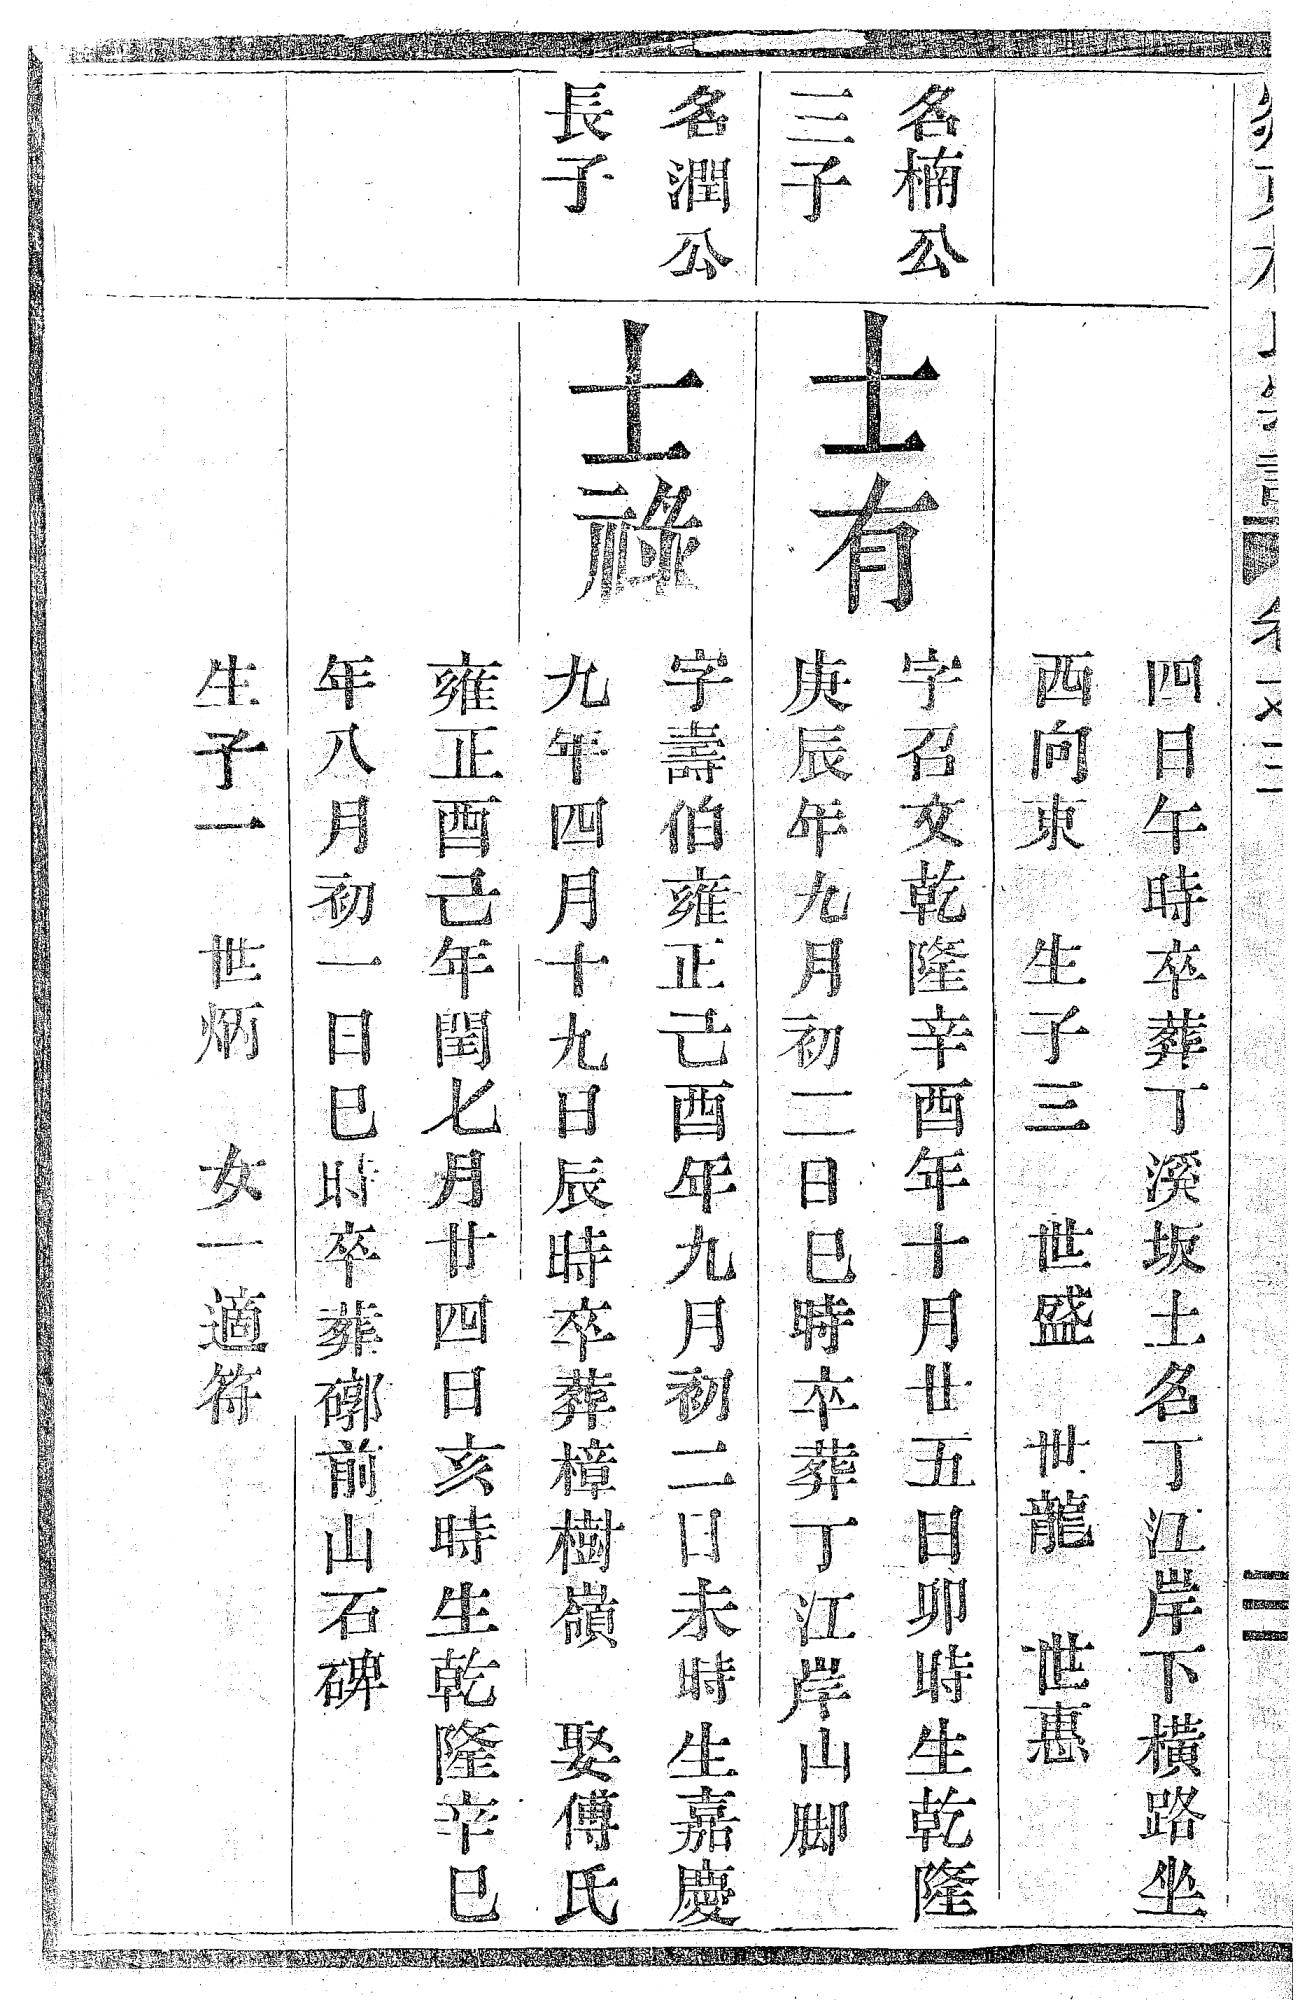 四日午時卒葬丁溪坂土名丁江岸下橫路坐
西向東 生子三 世盛 世龍 世惠
名楠公
三子
士有
字召文乾隆辛酉年十月廿五日卯時生乾隆
庚辰年九月初二日巳時卒葬丁江岸山脚
名潤公
長子
士祿
字壽伯雍正己酉年九月初二日未時生嘉慶
九年四月十九日辰時卒葬樟樹嶺 娶傅氏
雍正酉己年閏七月廿四日亥時生乾隆辛巳
年八月初一日巳時卒葬磭前山石碑
生子一 世炳 女一適符